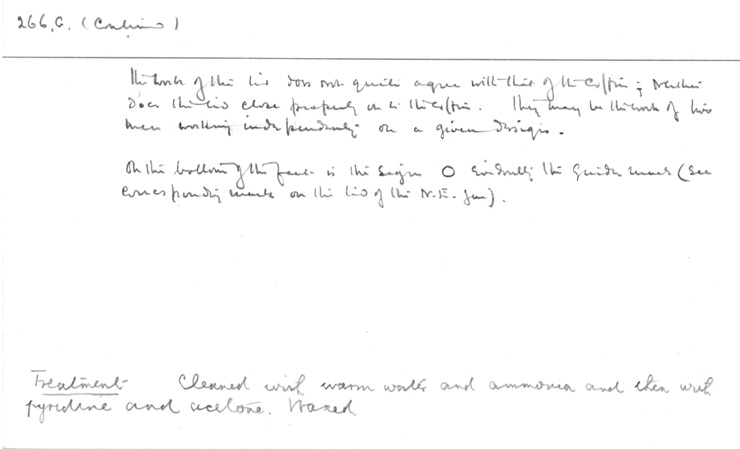 266, G. (Continued)
The work of the lid does not quite agree with that of the coffin; neither
does the lid close properly on to the coffin. They may be the work of two
men working independently on a given design.
On the bottom of the feet is the sign O evidently the guide mark (see
corresponding mark on the lid of the N.E. jar).
Treatment Cleaned with warm water and ammonia and then with
pyridine and acetone. Waxed